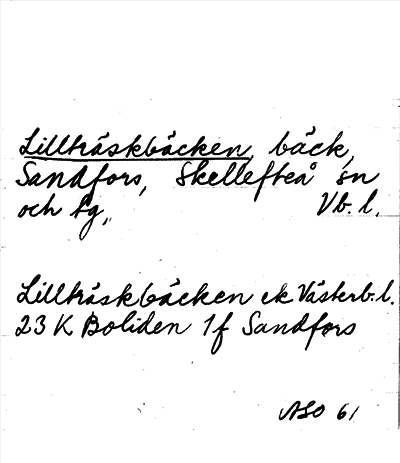 Lillträskbäcken, bäck,
Sandfors, Skellefteå sn
och tg, Vb. l.
Lillträskbäcken ek Västerb. l.
23 K Boliden 1f Sandfors
ASO 61